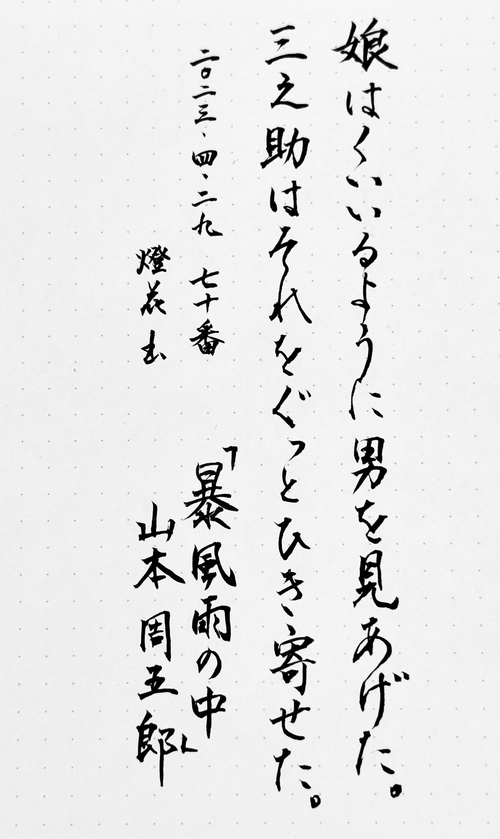 娘はくいいるように男を見あげた。
三之助はそれをぐっとひき寄せた。
二〇二三・四・二九 七十番
燈花
「暴風雨の中
山本周五郎」